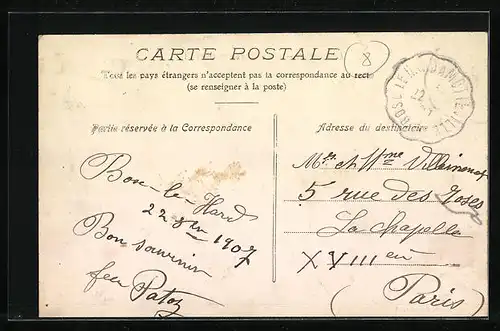 CARTE POSTALE
Tous les pays étrangers n'acceptent pas la correspondance au recto
(se renseigner à la poste)
8
Partie réservée à la Correspondance
Adresse du destinataire
Bou-le-Hard
22 8bre 1907
Bon souvenir
feu Patoz
Mr et Mme
5 rue des Roses
La Chapelle
XVIIIeme
(Paris)